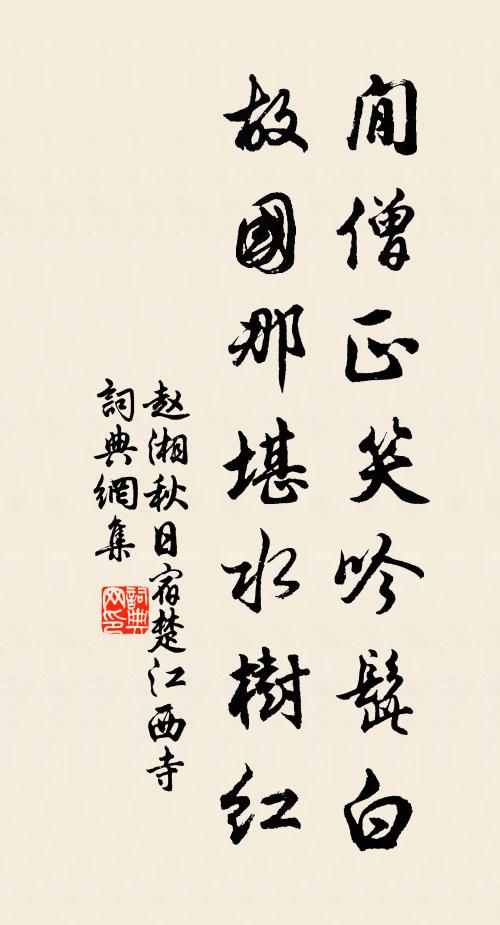 閒僧正笑吟髭白
故國那堪水樹紅
赵湘秋日宿楚江西寺
詞典網集
詞典网印